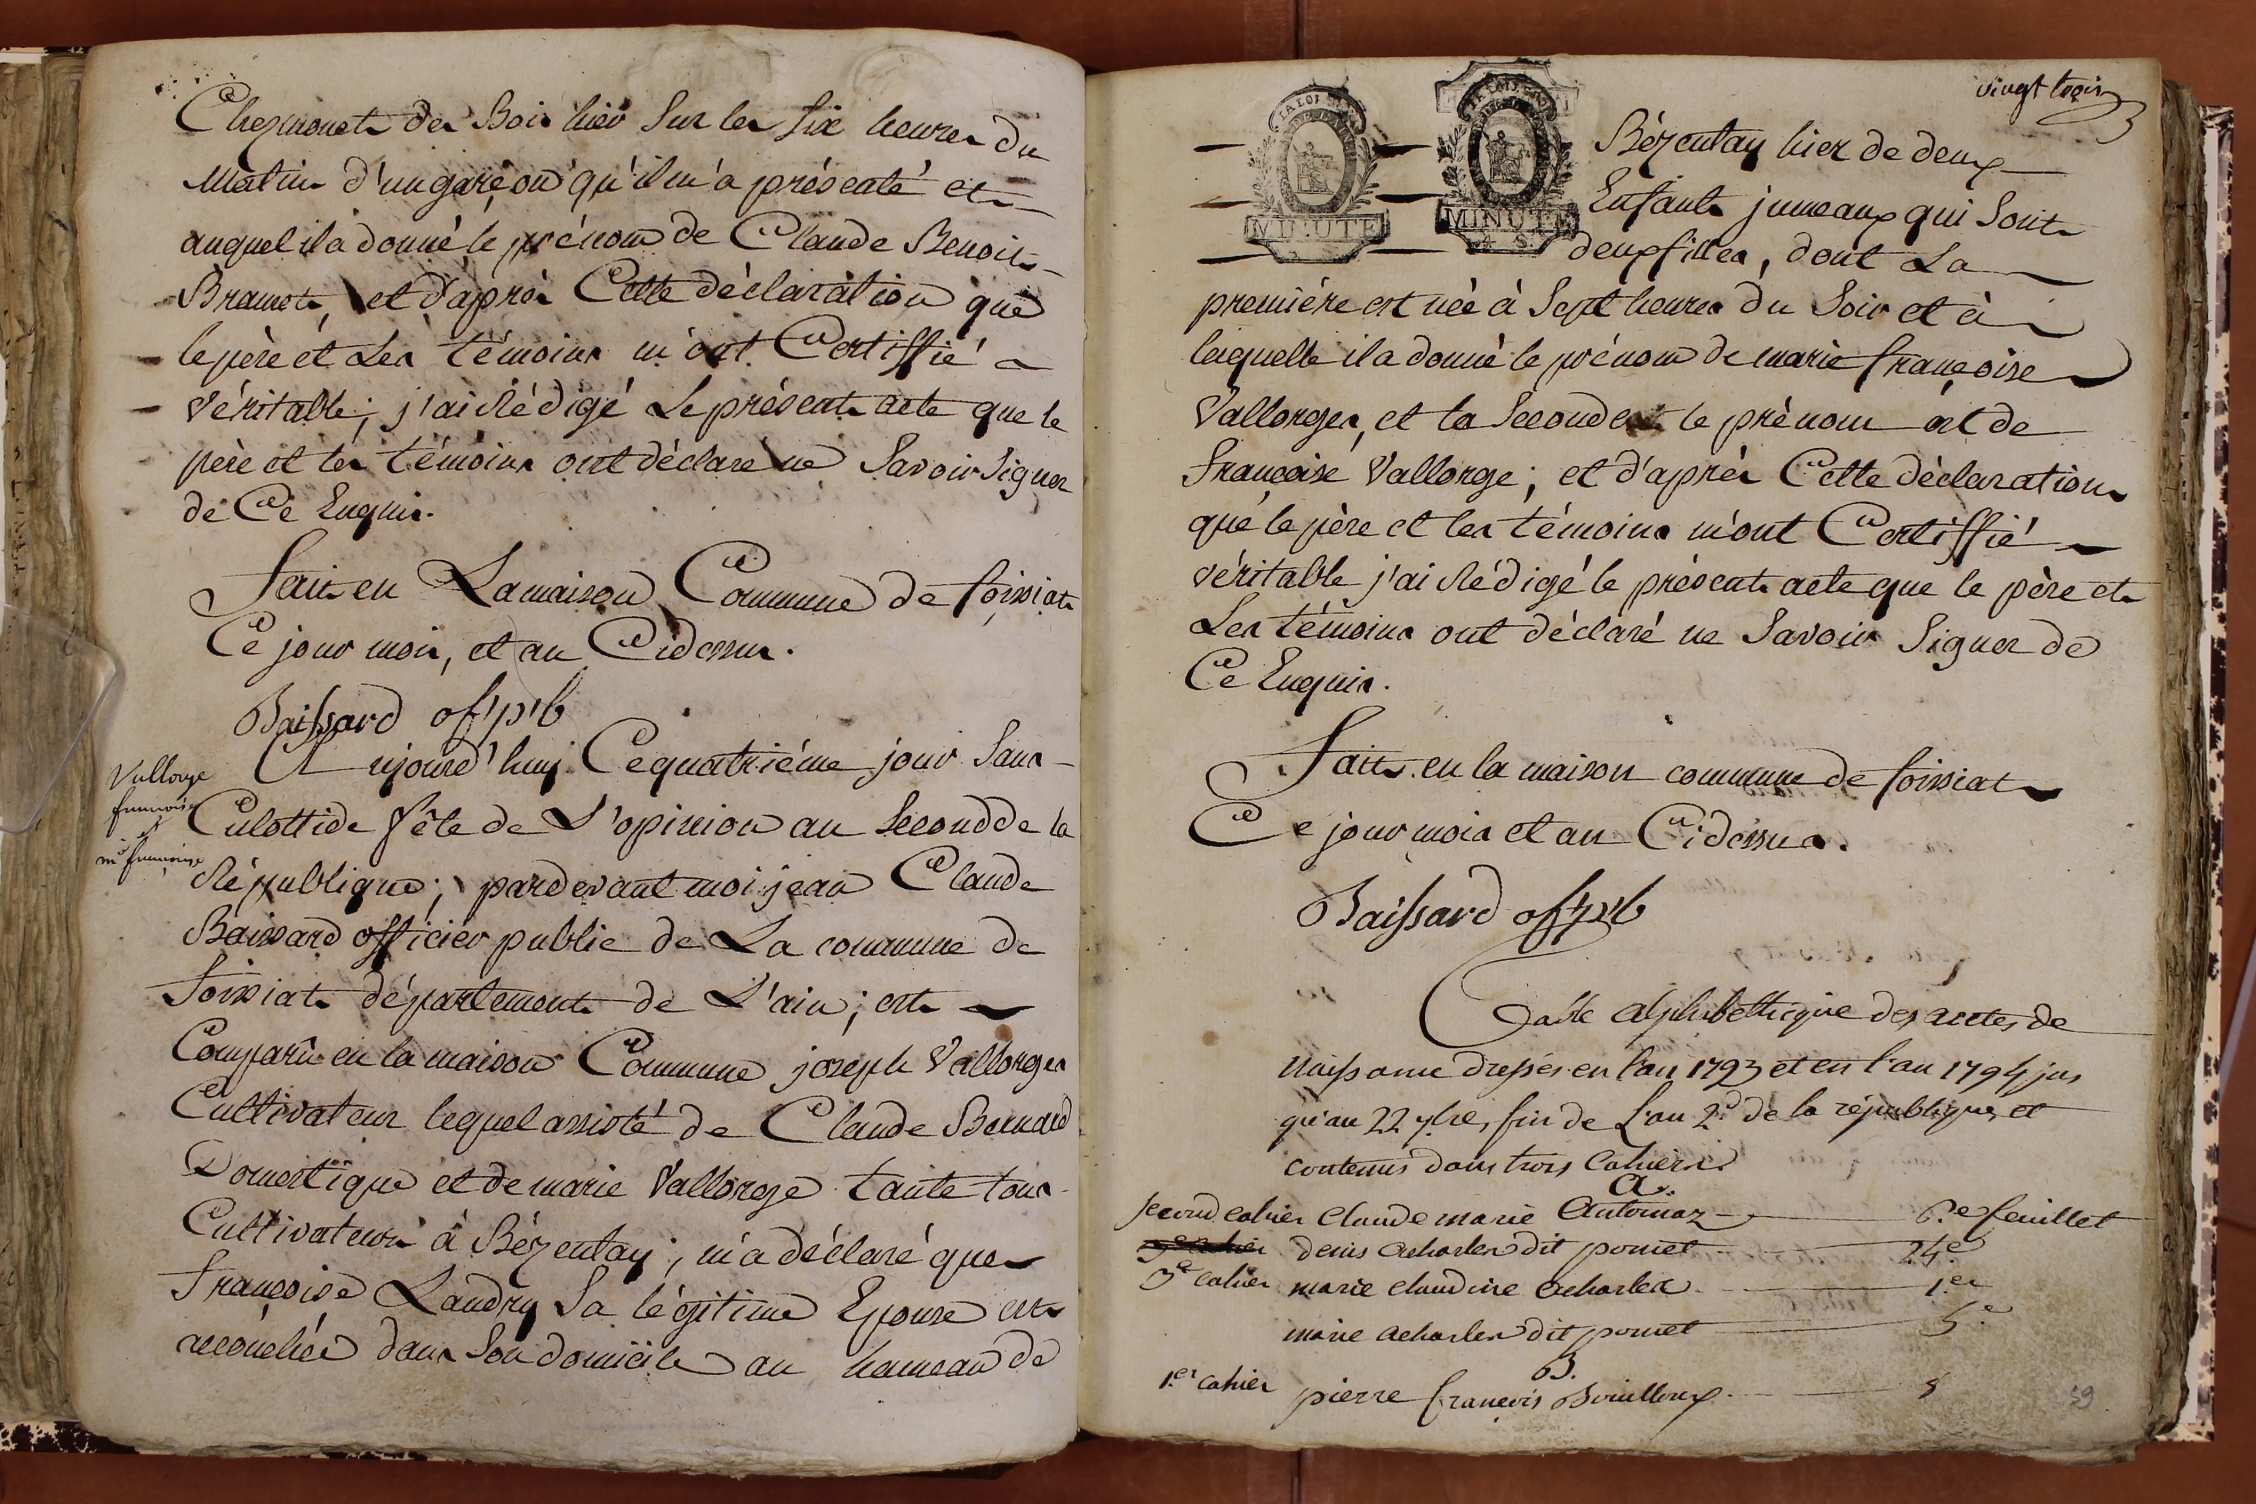 Chezmonet des Bois hier Sur les Six heures du
Matin d'un garçon qu'il m'a présenté et
auquel il a donné le prénom de Claude Benoit
Bramet, et d'après Cette déclaration que
le père et Les témoins m'ont Certiffié
véritable; j'ai Rédigé Le présent acte que le
père et les témoins ont déclaré ne Savoir Signer
de Ce Enquis.
Fait en La maison Commune de foissiat
Ce jour mois, et an Cidessus.
Baissard of. p. b
Vallorge
françoise
et
me françoise
Aujourd'huy Ce quatrième jour Sans
Culottide fête de L'opinion an Second de la
République; pardevant moi jean Claude
Baissard officier public de La commune de
foissiat département de L'ain; est
Comparû en la maison Commune joseph Vallorges
Cultivateur lequel assisté de Claude Bernard
Domestique et de marie Vallorge tante tous
Cultivateurs à Bézentay; m'a déclaré que
françoise Landry Sa légitime Epouse est
accouchée dans Son domicile au hameau de
vingt trois
LA LOI
MINUTE
LA LOI
MINUTE
4 S
Bézentay hier de deux
Enfants jumeaux qui Sont
deux filles, dont La
première est née à Sept heures du Soir et à
laquelle il a donné le prénom de marie françoise
Vallorges, et la Seconde le prénom est de
françoise Vallorge; et d'après Cette déclaration
que le père et les témoins m'ont Certiffié
véritable j'ai Rédigé le présent acte que le père et
Les témoins ont déclaré ne Savoir Signer de
Ce Enquis.
Fait en la maison commune de foissiat
Ce jour mois et an Cidessus.
Baissard of. p. b
Table alphabethique des actes de
naissance dressés en l'an 1793 et en l'an 1794 jus
qu'au 22 7bre, fin de L'an 2d de la république, et
contenus dans trois Cahiers
a.
second cahier Claude marie Antoinaz 6.e feuillet
denis acharles dit pomet 24e
3e cahier marie claudine acharles 1.er
marie acharles dit pomet 5.e
B.
1.er cahier pierre françois Bouilloux 8
59